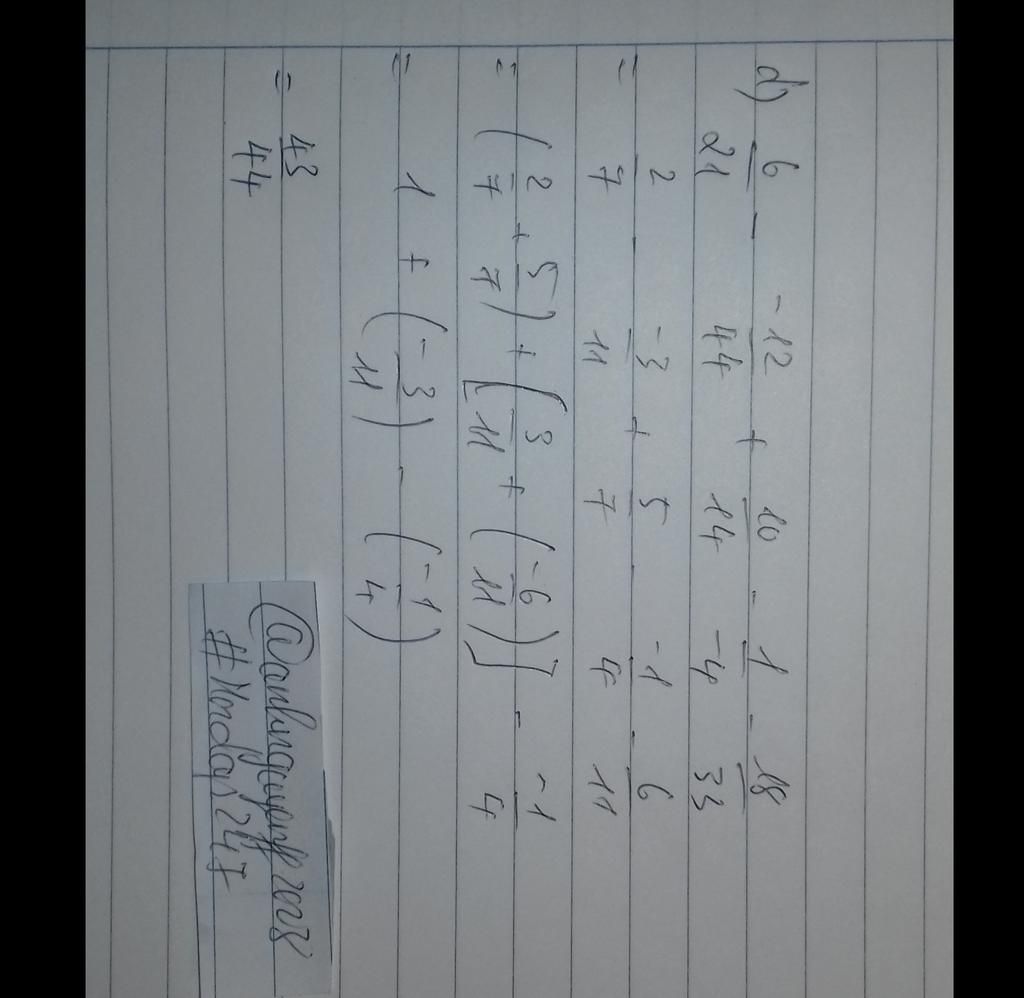 d) 6/21 - -12/44 + 10/14 - 1/-4 - 18/33
= 2/7 - -3/11 + 5/7 - -1/4 - 6/11
= (2/7 + 5/7) + [3/11 + (-6/11)] - -1/4
= 1 + (-3/11) - (-1/4)
= 43/44
@anhnguyenp2003
#Hondap247